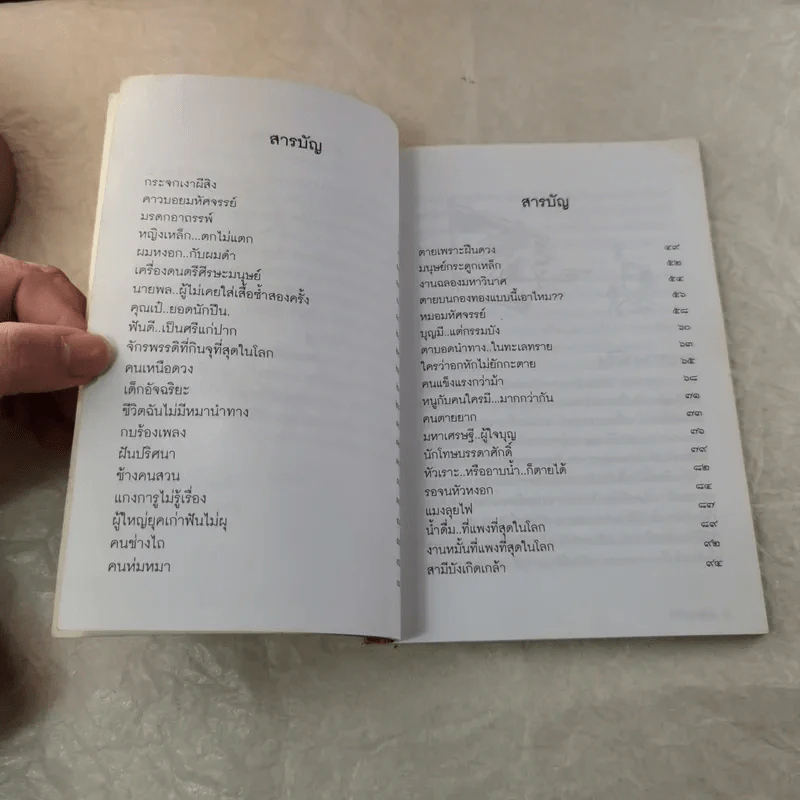 สารบัญ
กระจกเงาผีสิง
คาวบอยมหัศจรรย์
มรดกอาถรรพ์
หญิงเหล็ก...ตกไม่แตก
ผมหงอก..กับผมดำ
เครื่องดนตรีศีรษะมนุษย์
นายพล..ผู้ไม่เคยใส่เสื้อซ้ำสองครั้ง
คุณเป๋..ยอดนักปืน.
ฟันดี..เป็นศรีแก่ปาก
จักรพรรดิที่กินจุที่สุดในโลก
คนเหนือดวง
เด็กอัจฉริยะ
ชีวิตฉันไม่มีหมานำทาง
กบร้องเพลง
ฝันปริศนา
ช้างคนสวน
แกงการูไม่รู้เรื่อง
ผู้ใหญ่ยุคเก่าฟันไม่ผุ
คนช่างไถ
คนห่มหมา
สารบัญ
ตายเพราะฝืนดวง ๔๙
มนุษย์กระดูกเหล็ก ๕๒
งานฉลองมหาวินาศ ๕๔
ตายบนกองทองแบบนี้เอาไหม?? ๕๖
หมอมหัศจรรย์ ๕๘
บุญมี..แต่กรรมบัง ๖๐
ตาบอดนำทาง..ในทะเลทราย ๖๓
ใครว่าอกหักไม่ยักกะตาย ๖๕
คนแข็งแรงกว่าม้า ๖๘
หนูกับคนใครมี...มากกว่ากัน ๗๑
คนตายยาก ๗๓
มหาเศรษฐี..ผู้ใจบุญ ๗๖
นักโทษบรรดาศักดิ์ ๗๙
หัวเราะ..หรืออาบน้ำ..ก็ตายได้ ๘๒
รอจนหัวหงอก ๘๔
แมงลุยไฟ ๘๗
น้ำดื่ม..ที่แพงที่สุดในโลก ๘๙
งานหมั้นที่แพงที่สุดในโลก ๙๒
สามีบังเกิดเกล้า ๙๔